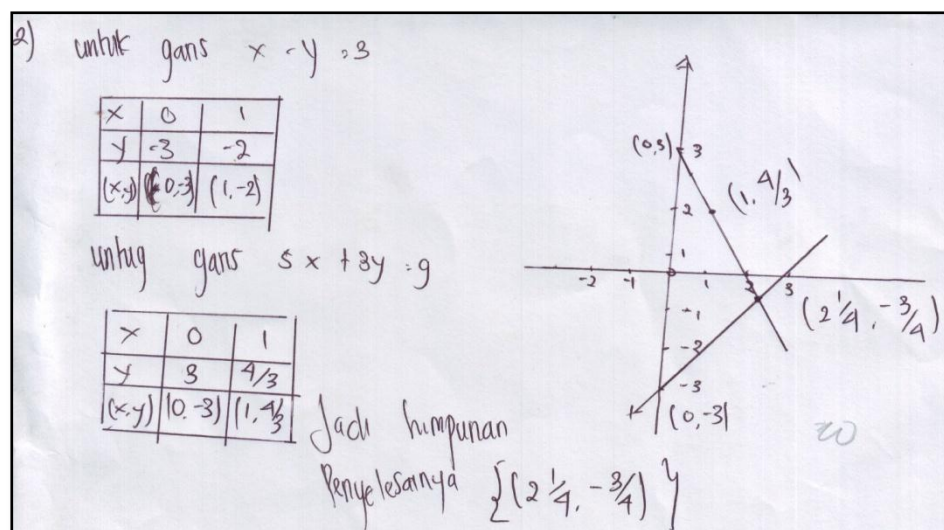 2) untuk garis x - y = 3
x 0 1
y -3 -2
(x,y) (0,-3) (1,-2)
untug garis 5x + 3y = 9
x 0 1
y 3 4/3
(x,y) (0,-3) (1, 4/3
Jadi himpunan
Penyelesainya {(2 1/4, -3/4)}
(0,3) 3
(1, 4/3)
2
1
-2 -1 0 1 2 3
(2 1/4, -3/4)
-1
-2
-3
(0,-3)
20